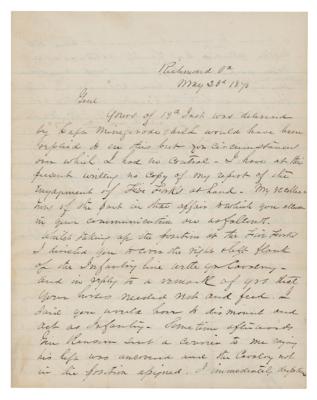 Richmond Va
May 20th 187
Genl
Yours of 19th Inst was delivered
by Capt Minnegerode & would have been
replied to on this but for circumstances
over which I had no control - I have at the
present writing no copy of my report of the
engagement of Five Forks at hand. My recollec-
tions of the part in that affair to which you allude
in your communication are as follows.
taking up the position at the Five Forks
I directed you to cover the right & left flank
of the Infantry line with yr Cavalry -
and in reply to a remark of yrs that
your horses needed rest and feed. I
said you would have to dismount and
act as Infantry - Sometime afterwards
Genl Ransom sent a courier to me saying
his left was uncovered and the Cavalry not
in the position assigned. I immediately